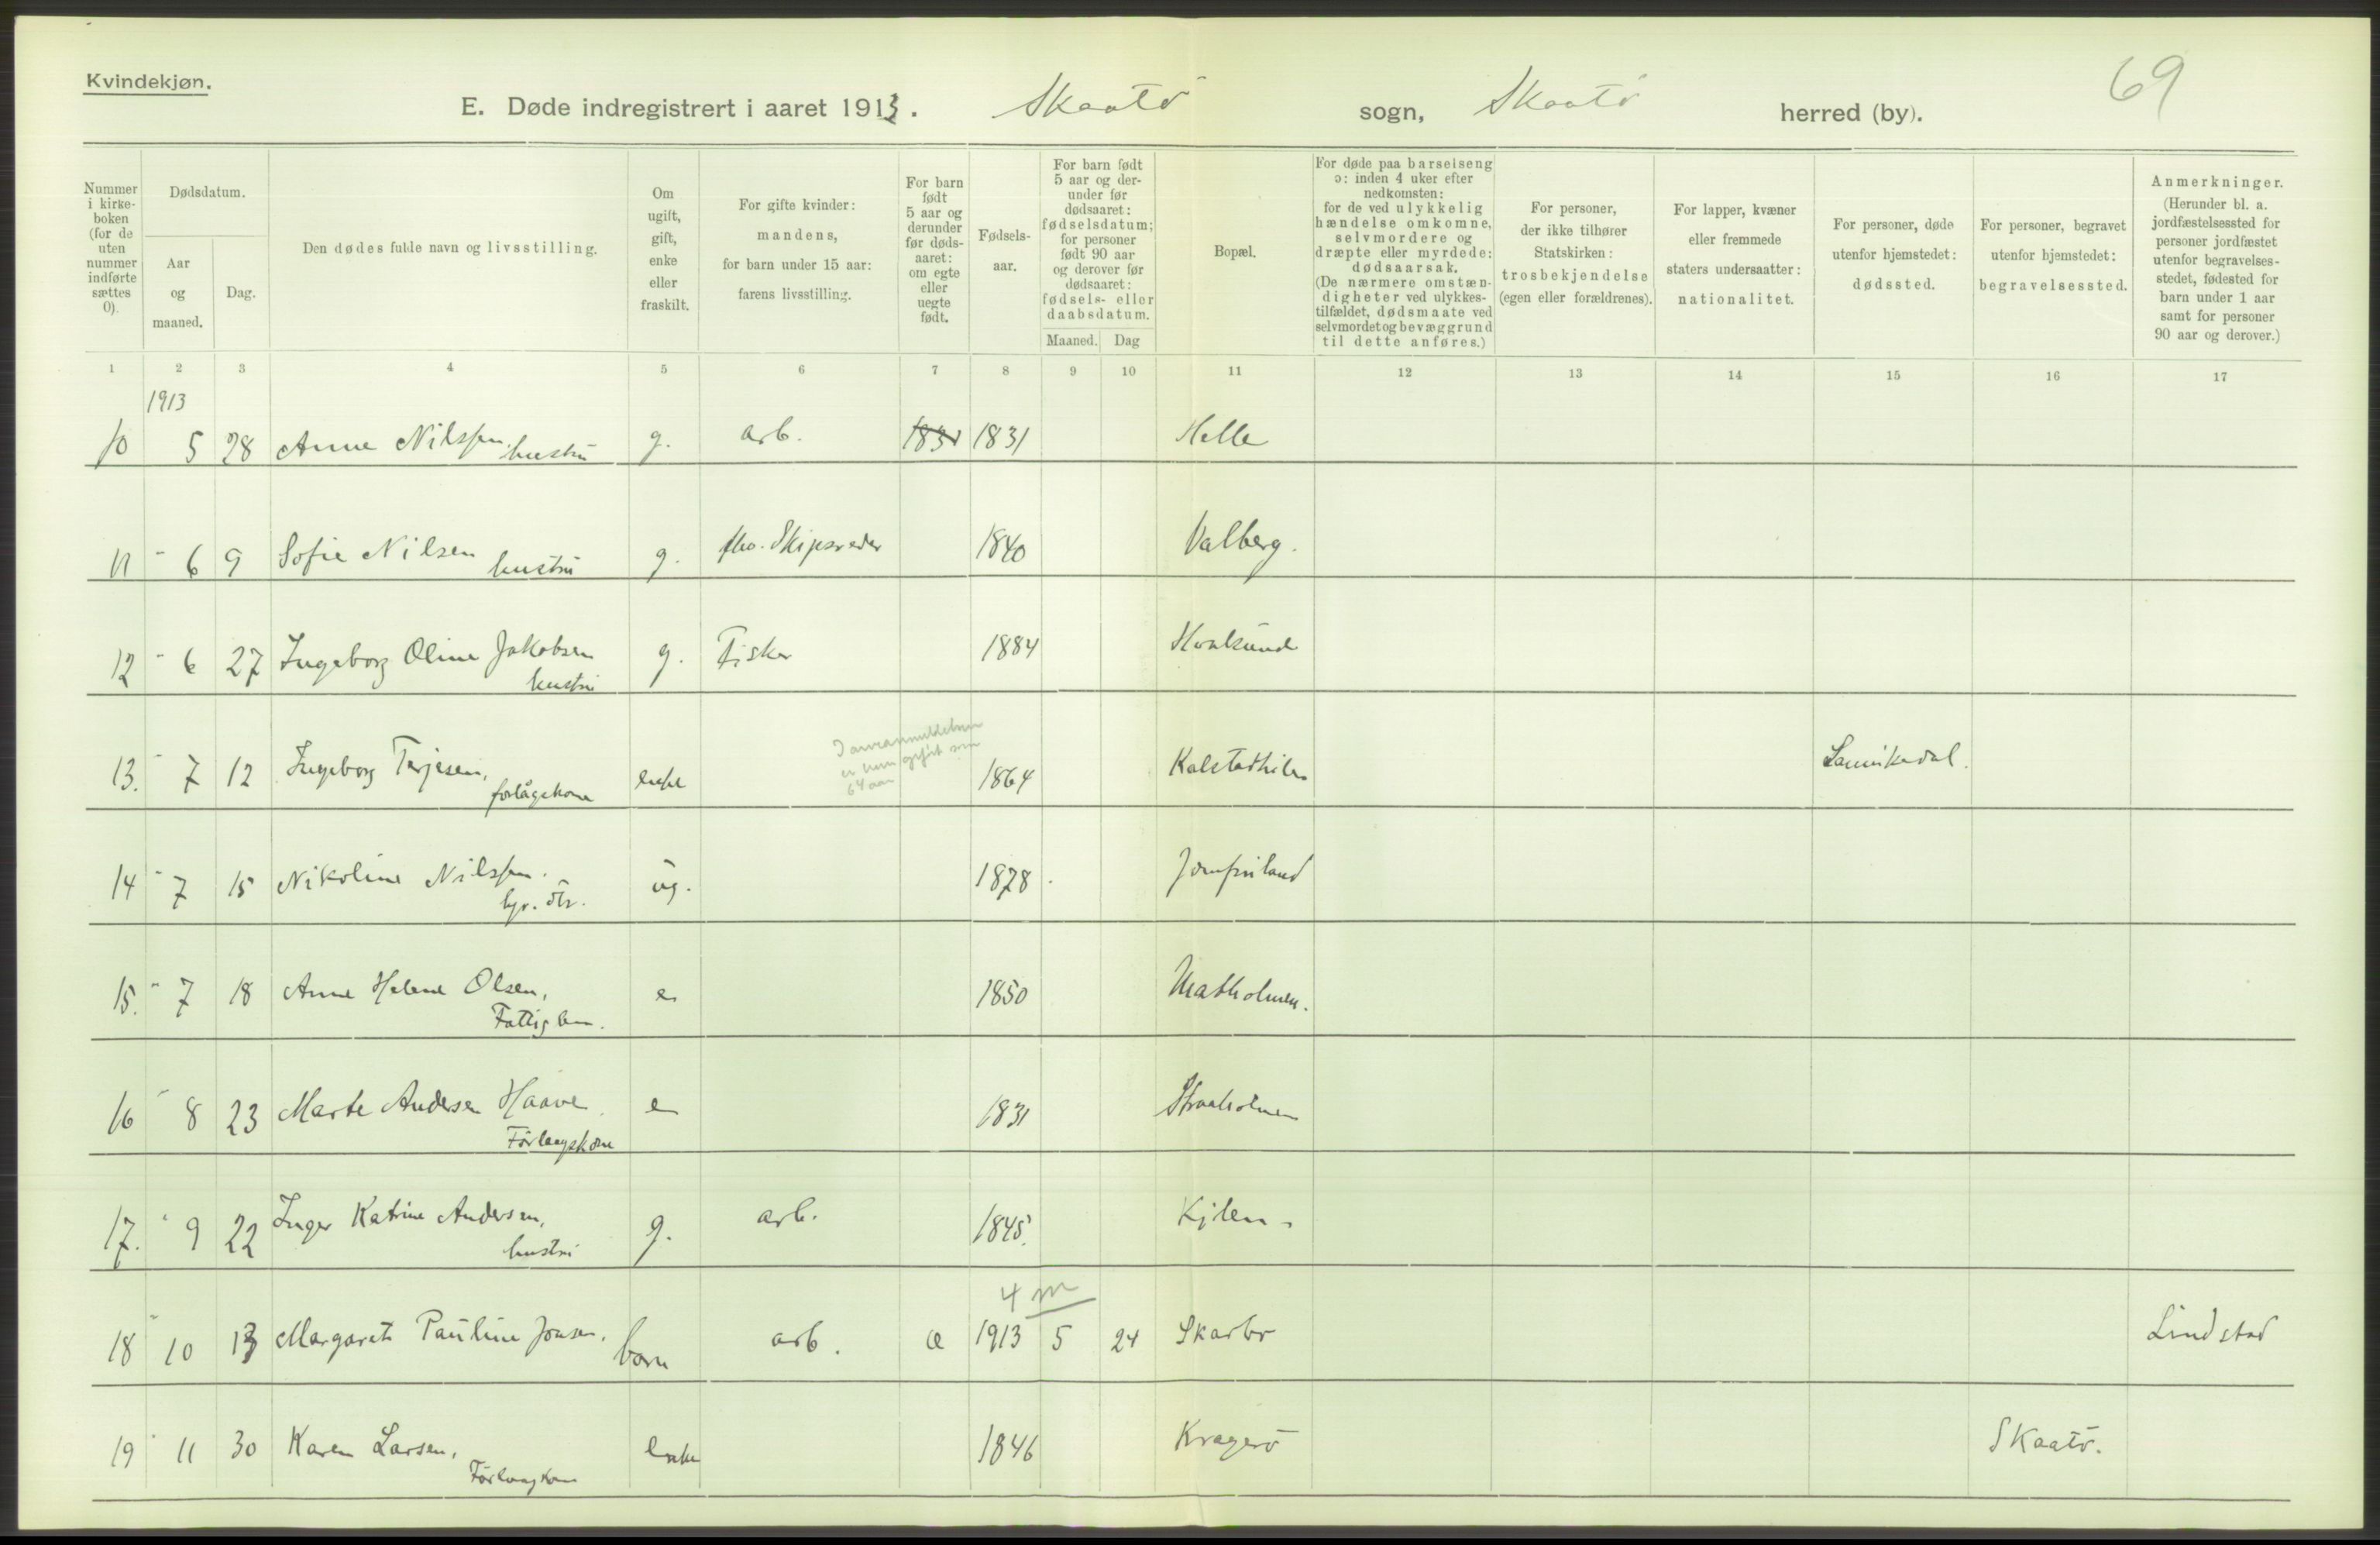 Kvindekjøn.
E. Døde indregistrert i aaret 1913. Skaatö sogn, Skaatö herred (by).
69
Nummer i kirke-boken (for de uten nummer indførte sættes 0).
Dødsdatum.
Aar og maaned.
Dag.
Den dødes fulde navn og livsstilling.
Om ugift, gift, enke eller fraskilt.
For gifte kvinder: mandens, for barn under 15 aar: farens livsstilling.
For barn født 5 aar og derunder før døds-aaret: om egte eller uegte født.
Fødsels-aar.
For barn født 5 aar og der-under før dødsaaret: fødselsdatum; for personer født 90 aar og derover før dødsaaret: fødsels- eller daabsdatum.
Maaned. Dag
Bopæl.
For døde paa barselseng ɔ: inden 4 uker efter nedkomsten: for de ved ulykkelig hændelse omkomne, selvmordere og dræpte eller myrdede: dødsaarsak. (De nærmere omstæn-digheter ved ulykkes-tilfældet, dødsmaate ved selvmordet og bevæggrund til dette anføres.)
For personer, der ikke tilhører Statskirken: trosbekjendelse (egen eller forældrenes).
For lapper, kvæner eller fremmede staters undersaatter: nationalitet.
For personer, døde utenfor hjemstedet: dødssted.
For personer, begravet utenfor hjemstedet: begravelsessted.
Anmerkninger. (Herunder bl. a. jordfæstelsessted for personer jordfæstet utenfor begravelses-stedet, fødested for barn under 1 aar samt for personer 90 aar og derover.)
1 2 3 4 5 6 7 8 9 10 11 12 13 14 15 16 17
1913
10 5 28 Anne Nilssen. hustru g. arb. 1831 1831 Helle
11 - 6 9 Sofie Nilsen hustru g. fho. Skipsreder 1840 Valberg.
12 - 6 27 Ingeborg Oline Jakobsen hustru g. Fisker 1884 Hvalsund
13. - 7 12 Ingeborg Terjesen, forlagskone enke 1864 Kalstadkilen Sannikedal.
er hun gift som
64 aar
14 - 7 15 Nikoline Nilssen. ug. 1878 Jomfruland
15. - 7 18 Anne Helene Olsen, Fattiglem. e 1850 1850
16 - 8 23 Marte Andersen Haave, Forlaagskone e 1831 Straaholmen
17. - 9 22 Inger Katrine Andersen, hustru g. arb. 1845. Kjilen
4 m
18 - 10 13 Margarete Pauline Jonsen. barn arb. æ 1913 5 24 Skarbo Lindstad
19 - 11 30 Karen Larsen, Forlaagskone enke 1846 Kragerö Skaatö.